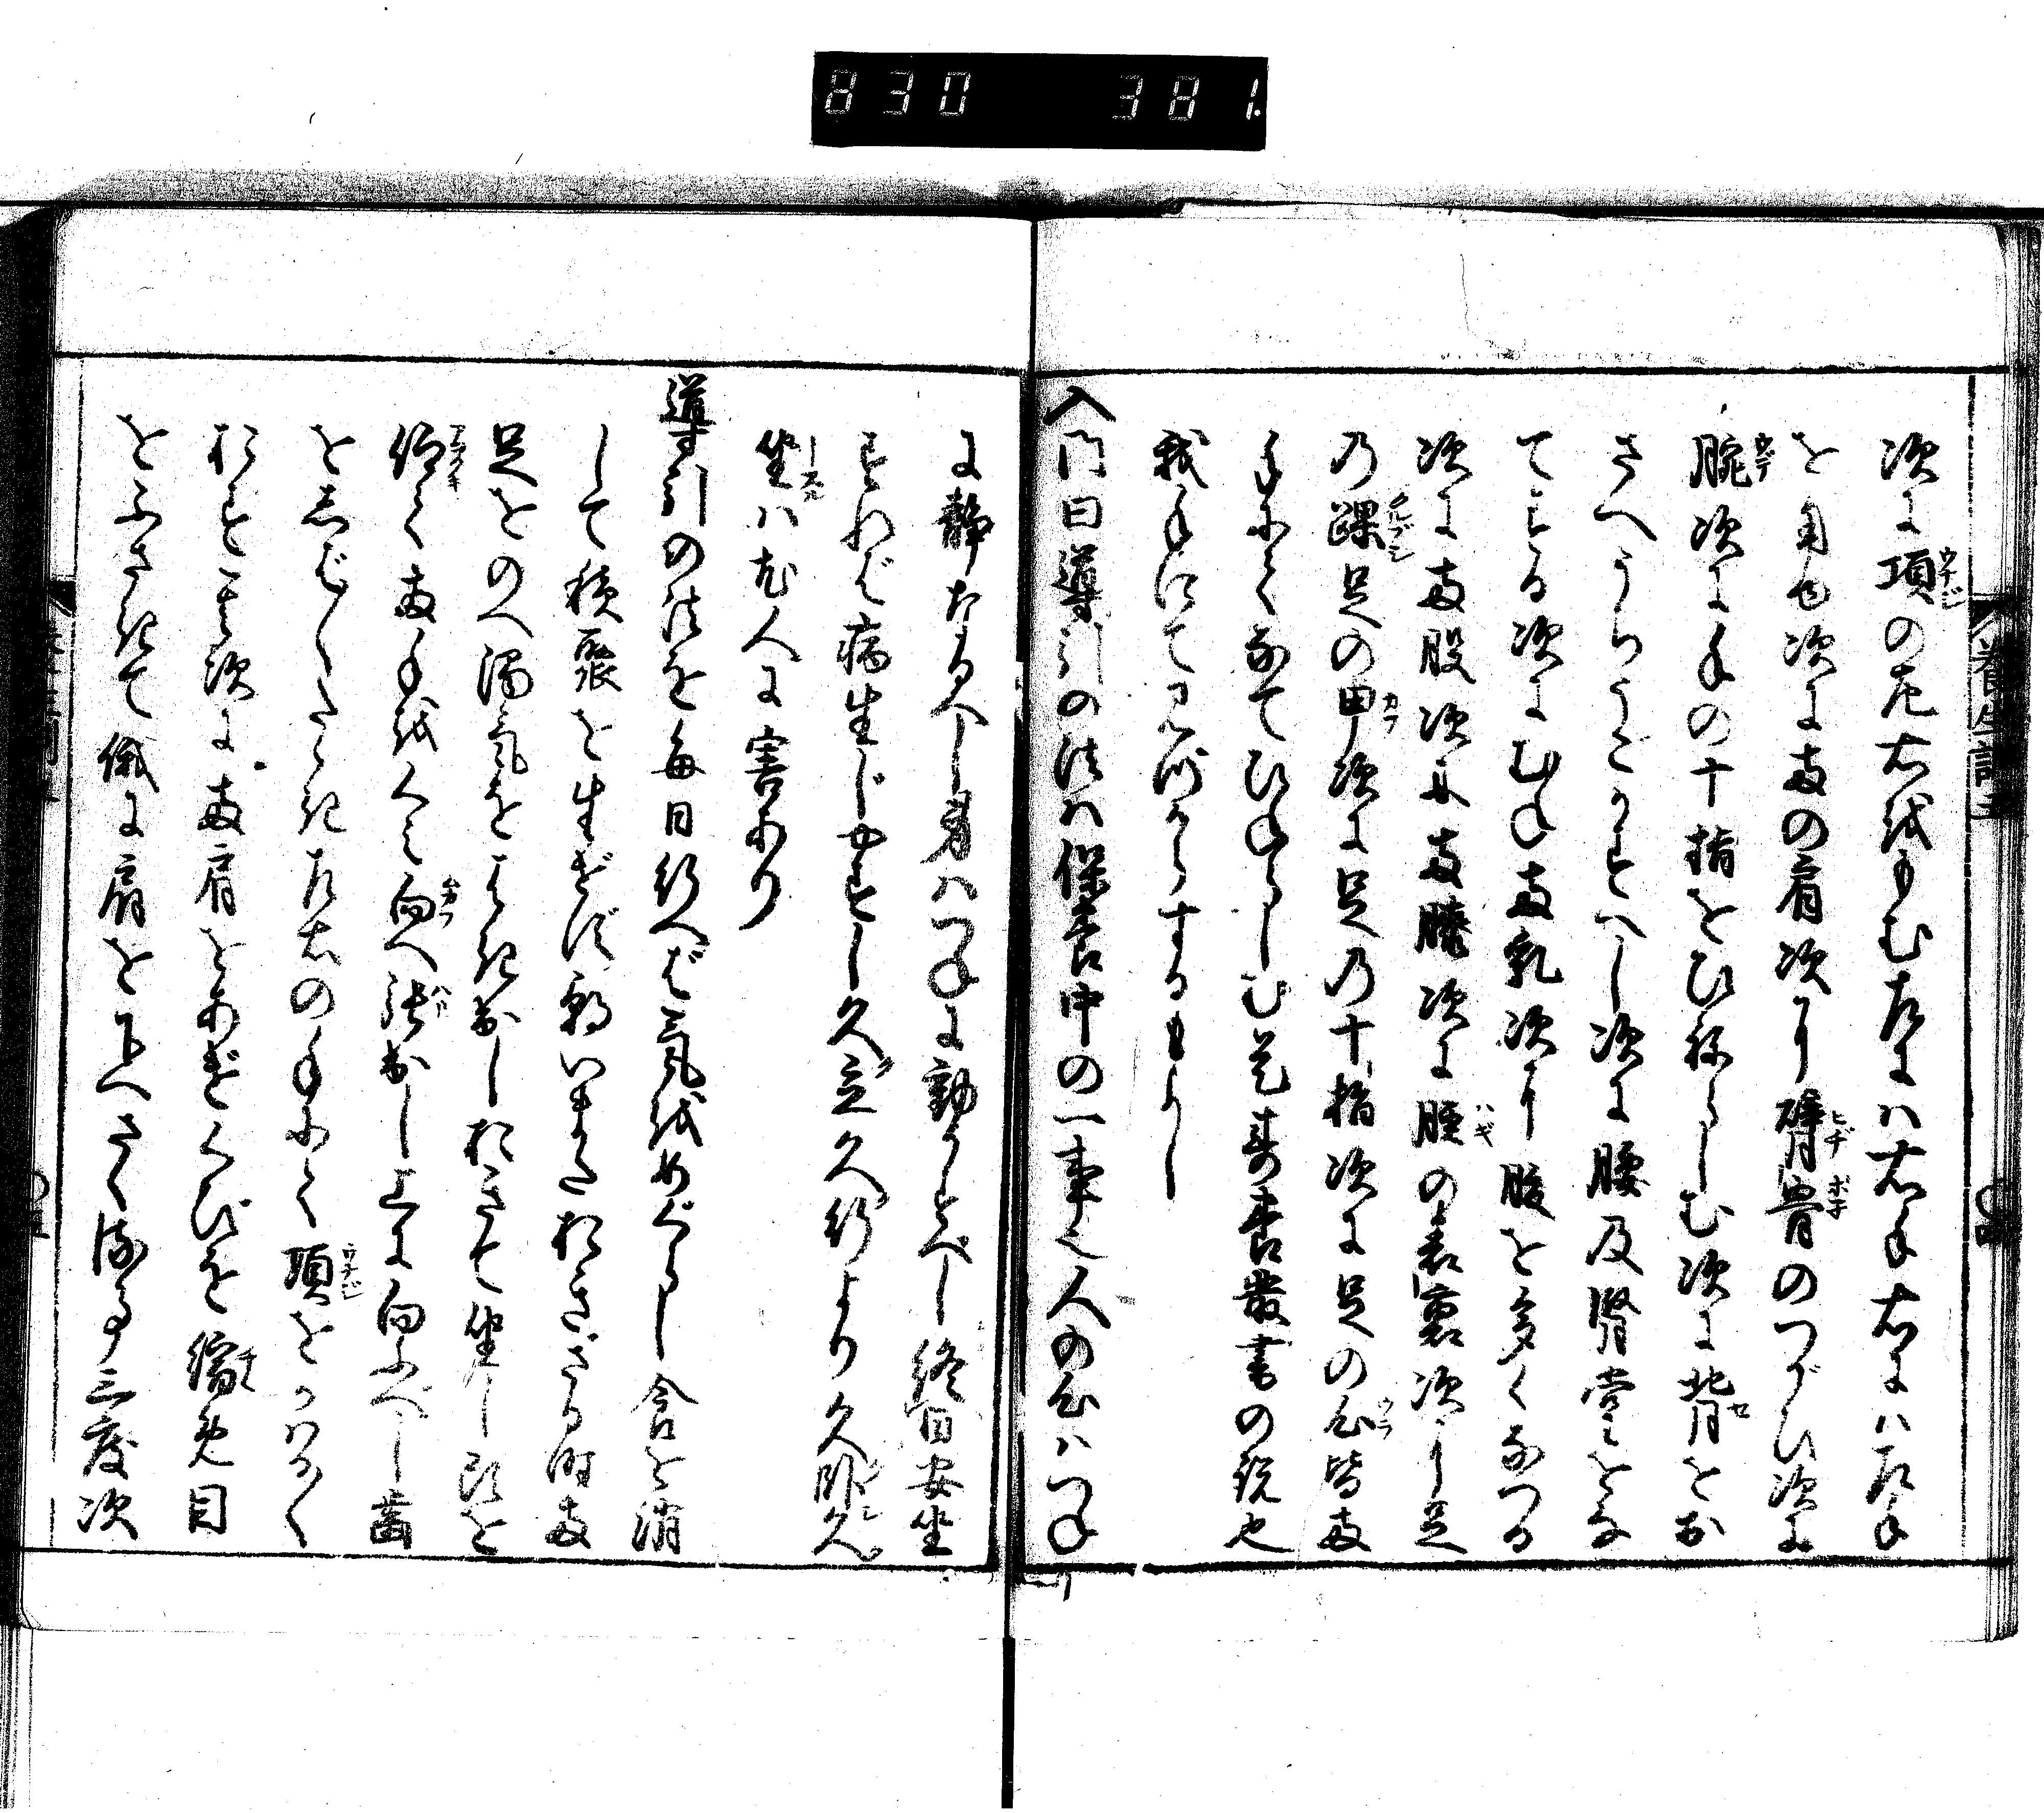 830 381.
次に項の左右をもむ左には右手右には左手
を用ゆ次に両の肩次に臂骨のつがひ次に
腕次に手の十指をひねらしむ次に背をお
さへうちうごかすへし次に腰及腎堂をな
てする次にむね両乳次に腹を多くなつる
次に両股次に両膝次に脛の表裏次に足
の踝足の甲次に足の十指次に足の心皆両
手にてなてひねらしむ是寿養叢書の説也
我手にてみづからするもよし
入門曰導引の法は保養中の一事也人の心はつね
に静なるへし身はつねに動かすべし終日安坐
すれば病生じやすし久立久行より久臥久
坐は尤人に害あり
導引の法を毎日行へば気をめぐらし食を消
して積聚を生ぜず朝いまたおきざる時両
足をのへ濁気をはき出しおきて坐し頭を
仰て両手をくみ向へ張出し上に向ふべし歯
をしば〳〵たゝき左右の手にて項をかはる〳〵
おす其次に両肩をあげくびを縮め目
をふさきて俄に肩を下へさくる事三度次